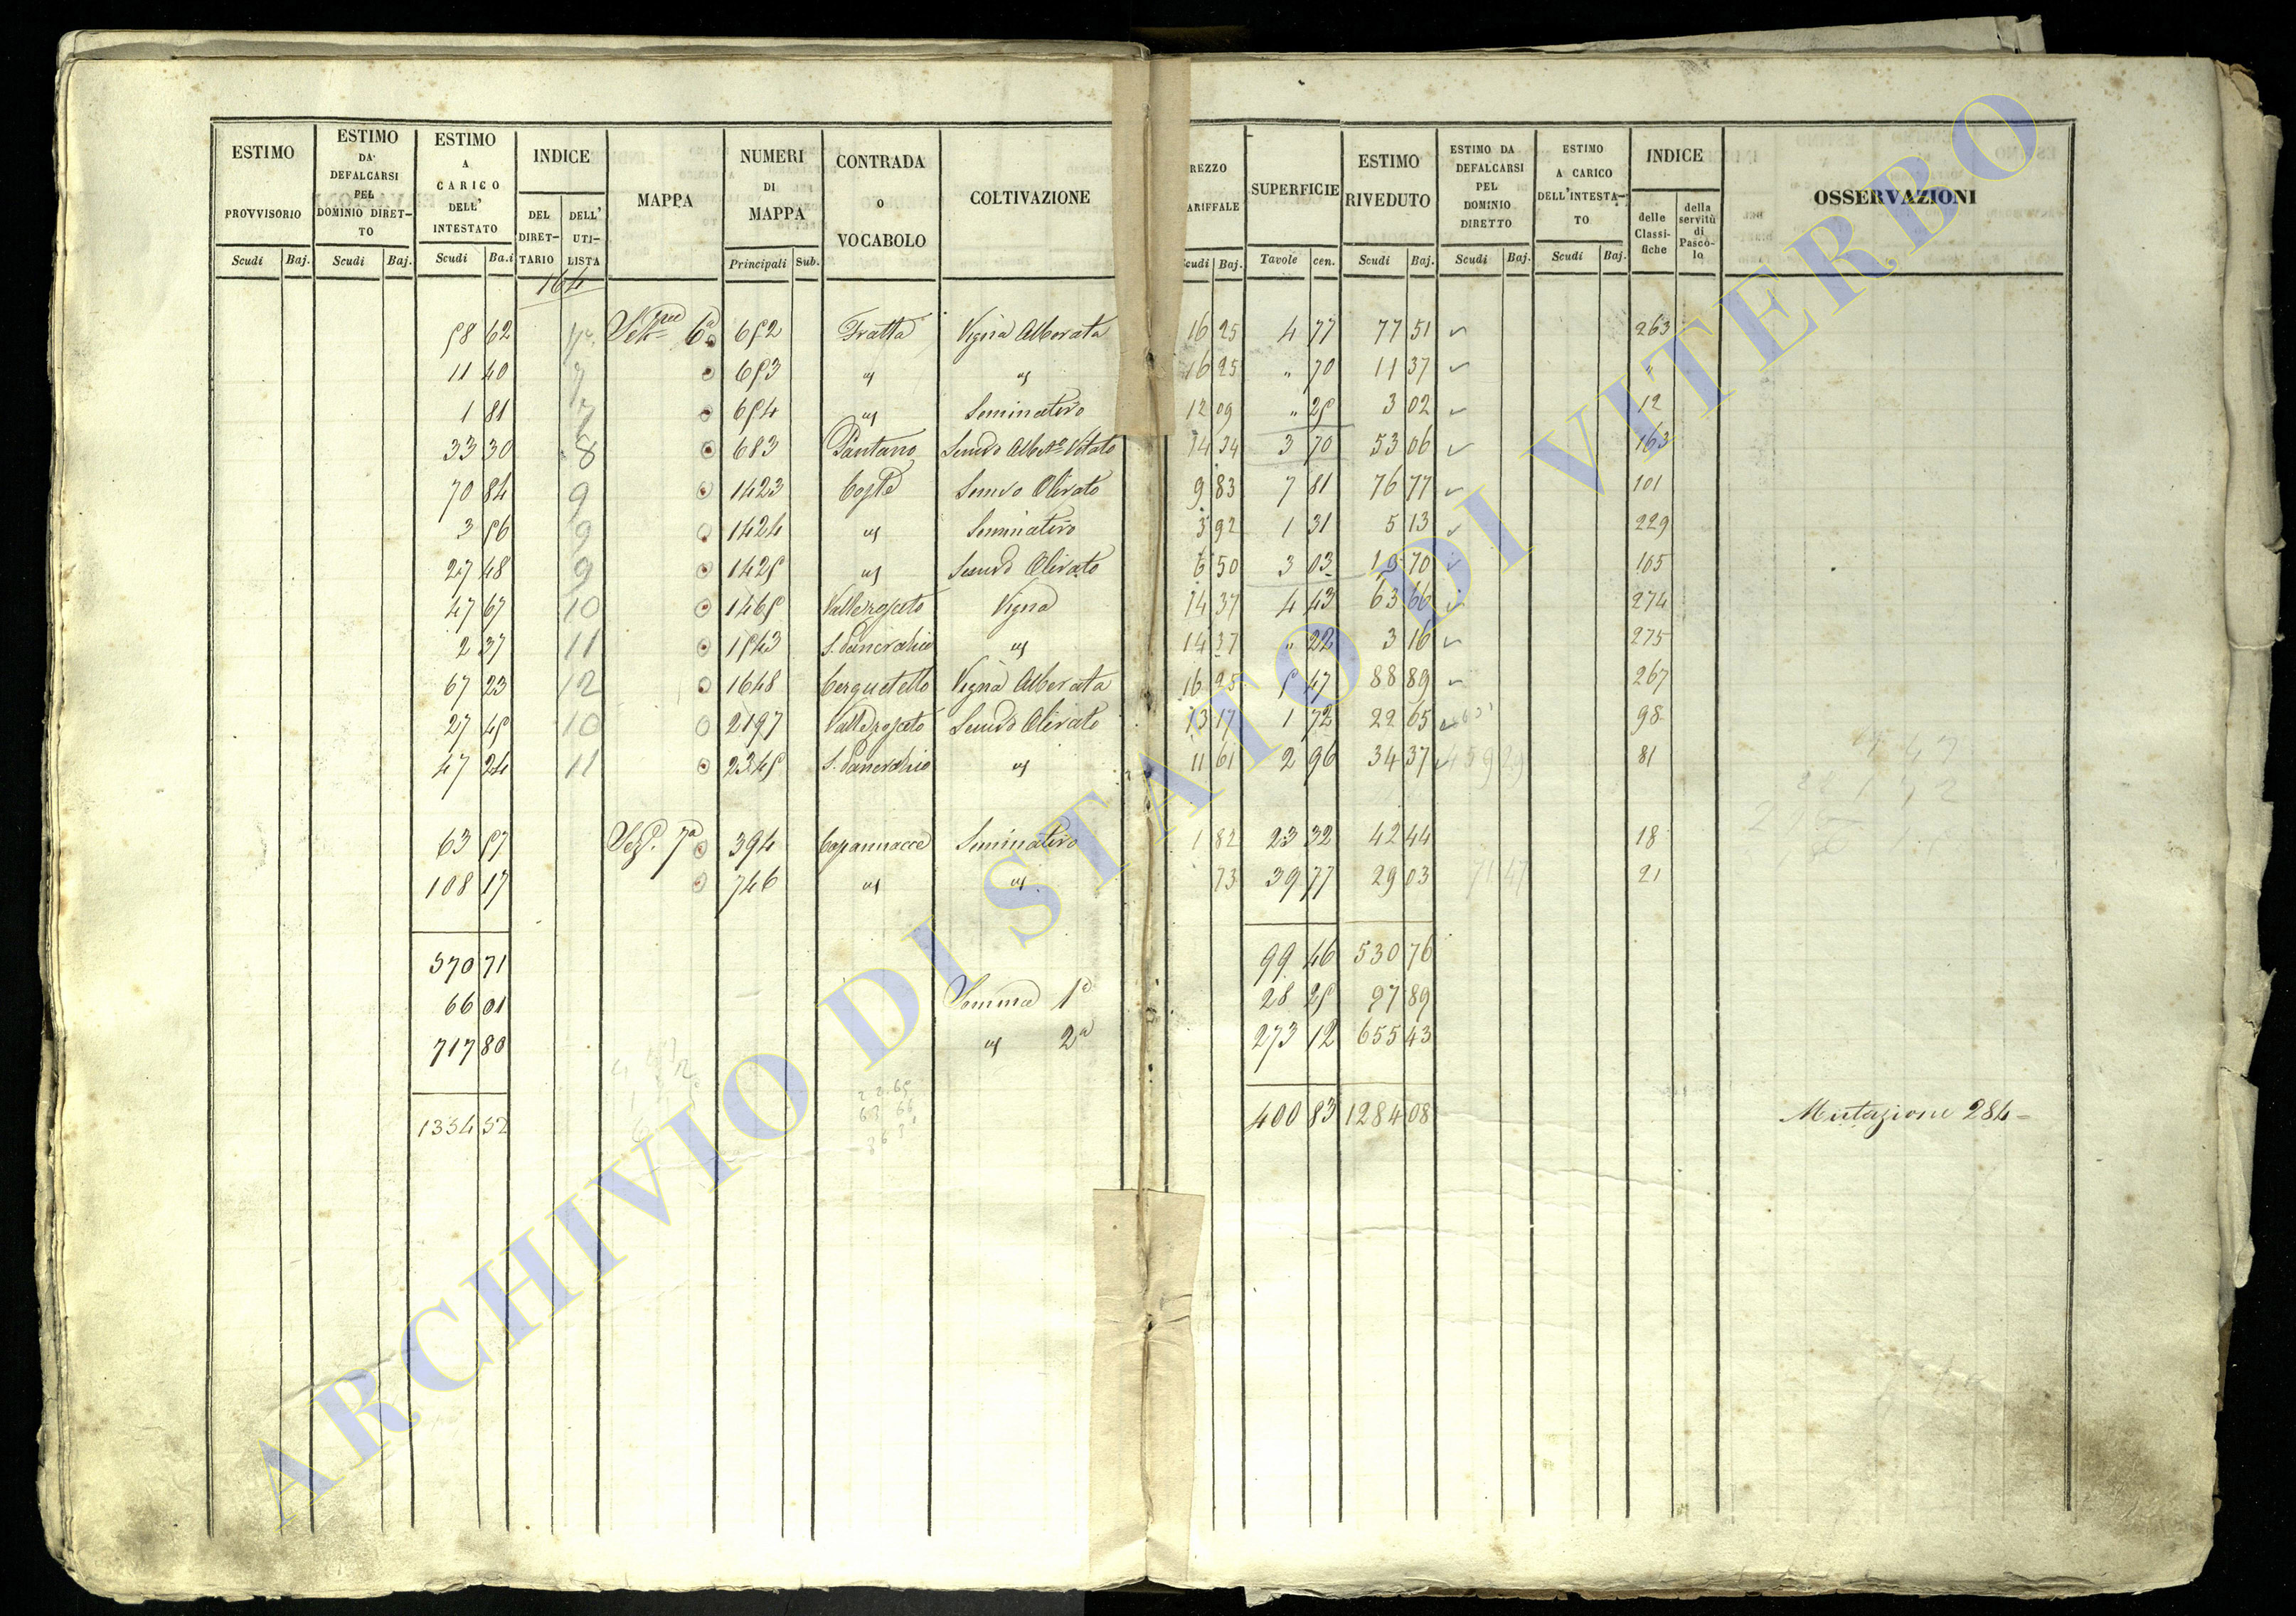 ESTIMO PROVVISORIO | ESTIMO DA DEFALCARSI PEL DOMINIO DIRETTO | ESTIMO A CARICO DELL' INTESTATO | INDICE DEL DIRETTARIO | DELL' UTILISTA | MAPPA | NUMERI DI MAPPA | CONTRADA O VOCABOLO | COLTIVAZIONE | REZZO ARIFFALE | SUPERFICIE | ESTIMO RIVEDUTO | ESTIMO DA DEFALCARSI PEL DOMINIO DIRETTO | ESTIMO A CARICO DELL'INTESTATO | INDICE delle Classifiche | della servitù di Pascolo | OSSERVAZIONI
Scudi | Baj. | Scudi | Baj. | Scudi | Ba.i | Principali | Sub. | cudi | Baj. | Tavole | cen. | Scudi | Baj. | Scudi | Baj. | Scudi | Baj.
164
58 62 | 6a | 652 | Fratta | Vigna Alborata | 16 25 | 4 77 | 77 51 | 263
11 40 | 7 | 653 | " | " | 16 25 | " 70 | 11 37 | "
1 81 | 7 | 654 | " | Seminativo | 12 09 | " 25 | 3 02 | 12
33 30 | 8 | 683 | Pantano | Semvo Albto Vitato | 14 34 | 3 70 | 53 06 | 163
70 84 | 9 | 1423 | Coste | Semvo Olivato | 9 83 | 7 81 | 76 77 | 101
3 56 | 9 | 1424 | " | Seminativo | 3 92 | 1 31 | 5 13 | 229
27 48 | 9 | 1425 | " | Semvo Olivato | 6 50 | 3 03 | 19 70 | 105
47 67 | 10 | 1465 | Vallerosato | Vigna | 14 37 | 4 43 | 63 66 | 274
2 37 | 11 | 1543 | S. Pancrazio | " | 14 37 | " 22 | 3 16 | 275
67 23 | 12 | 1648 | Cerquetello | Vigna Alberata | 16 25 | 5 47 | 88 89 | 267
27 45 | 10 | 2197 | Vallerosato | Semvo Olivato | 13 17 | 1 72 | 22 65 | 98
47 24 | 11 | 2345 | S. Pancrazio | " | 11 61 | 2 96 | 34 37 | 81
63 57 | Sez. 7a | 394 | Capannacce | Seminativo | 1 82 | 23 32 | 42 44 | 18
108 17 | 746 | " | " | 73 | 39 77 | 29 03 | 21
570 71 | 99 46 | 530 76
66 01 | Somma 1a | 28 25 | 97 89
717 80 | " 2a | 273 12 | 655 43
1354 52 | 400 83 | 1284 08 | Mutazione 284
22.65
63 66
ARCHIVIO DI STATO DI VITERBO